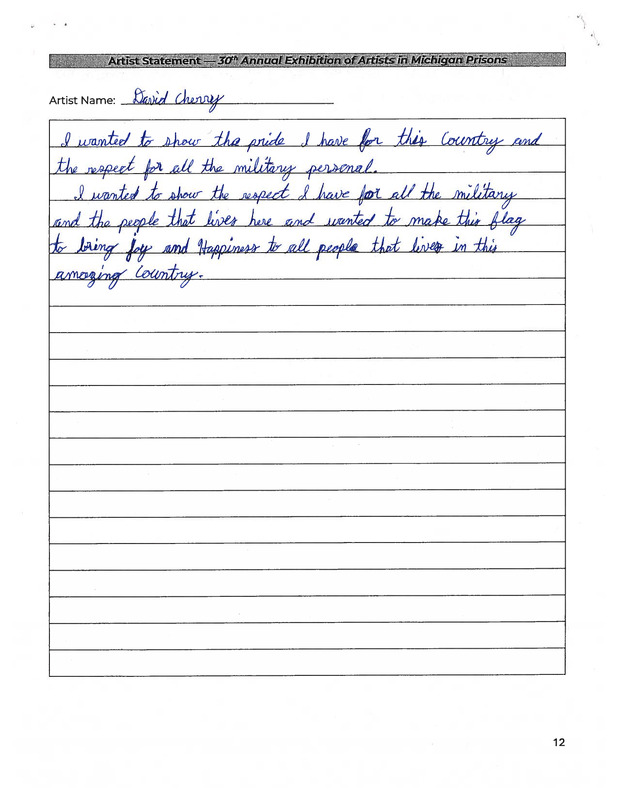 Artist Statement — 30th Annual Exhibition of Artists in Michigan Prisons
Artist Name: David Cherry
I wanted to show the pride I have for this Country and
the respect for all the military personal.
I wanted to show the respect I have for all the military
and the people that lives here and wanted to make this flag
to bring joy and Happiness to all people that lives in this
amazing Country.
12